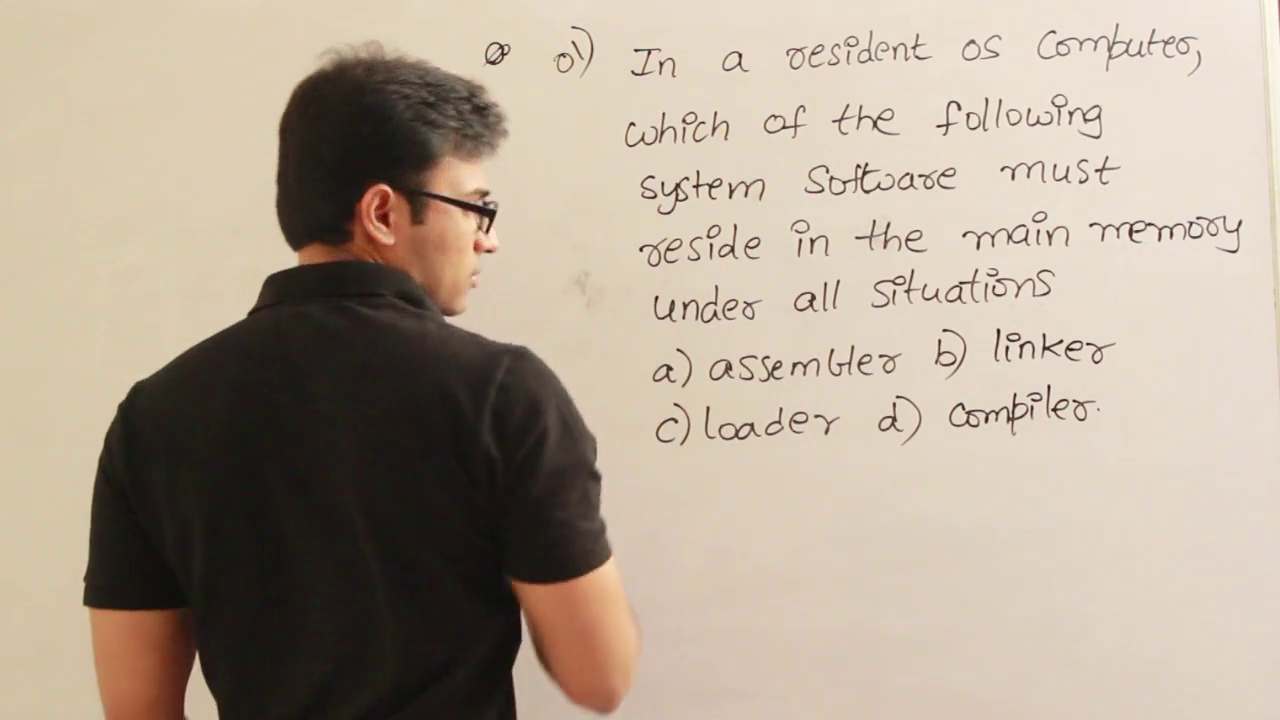 01) In a resident os Computer,
which of the following
system software must
reside in the main memory
under all situations
a) assembler b) linker
c) loader d) compiler.